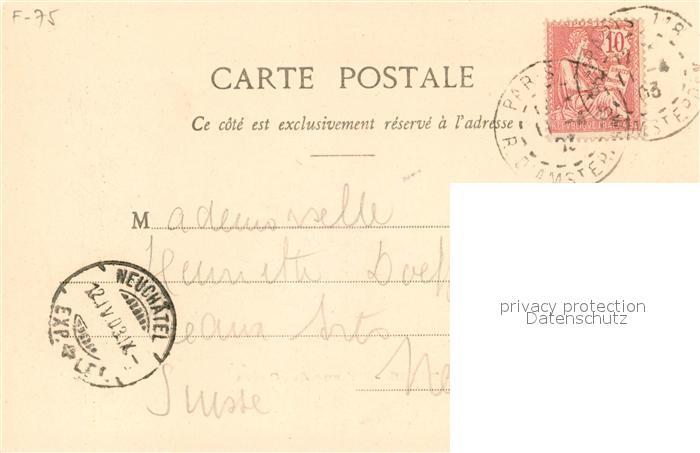 F-75
10
CARTE POSTALE
Ce côté est exclusivement réservé à l'adresse
PARIS 118
R. D'AMSTERDAM
Mademoiselle
Henriette
Beaux Arts
Suisse
NEUCHÂTEL
12.IV.03.IX-
EXP. LET.
privacy protection
Datenschutz